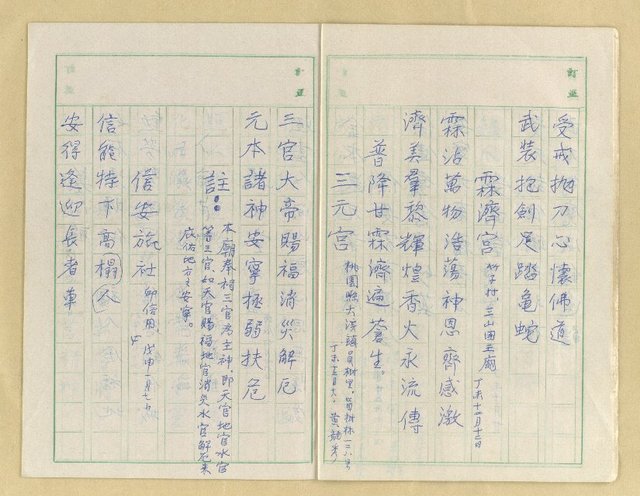 受戒拋刀心懷佛道
武裝抱劍足踏龜蛇
霖濟宮 竹子村，三山國王廟 丁未十二月十三日
霖沾萬物浩蕩神恩齊感激
濟美羣黎輝煌香火永流傳
普降甘霖濟遍蒼生。
三元宮 桃園縣大溪鎮員樹里，員樹林一二八号 丁未十二月十八. 黃
三官大帝賜福消災解厄
元本諸神安寧極弱扶危
註： 本廟奉祀三官為主神，即天官地官水官
等三官，如天官賜福地官消災水官解厄來
庇佑地方之安寧。
信安旅社 信用. 戊申一月七日
信能特下高榻
入
安得逢迎長者車
訂正
訂正